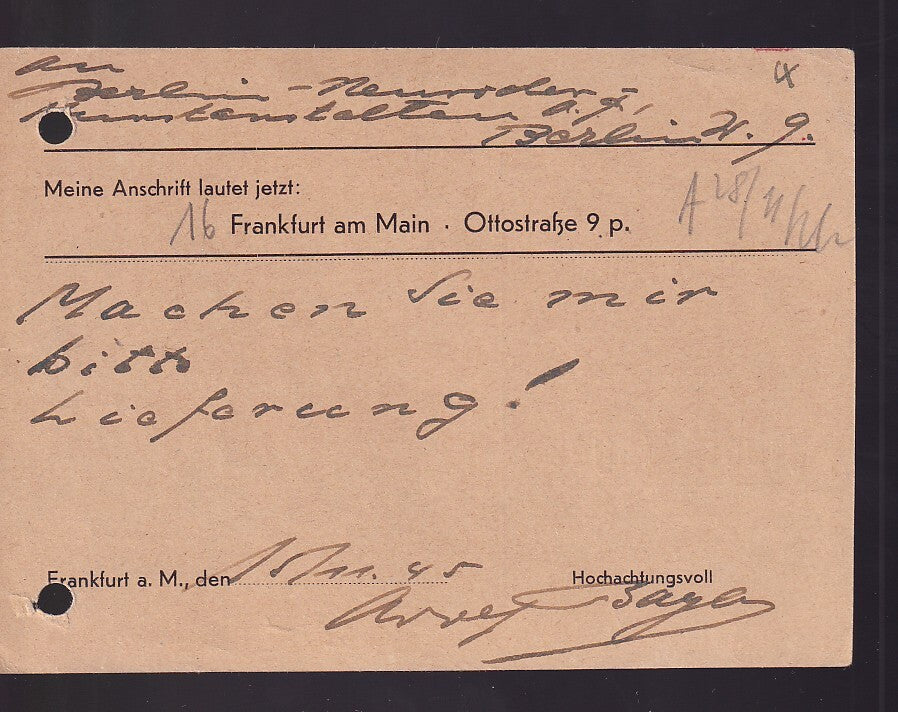 an
Berlin - Neuroder -
Kunstanstalten A.G.,
Berlin W. 9.
Meine Anschrift lautet jetzt:
16 Frankfurt am Main · Ottostraße 9 p.
Machen Sie mir
bitte
Lieferung!
Frankfurt a. M., den 15/11. 45
Hochachtungsvoll
Bayer